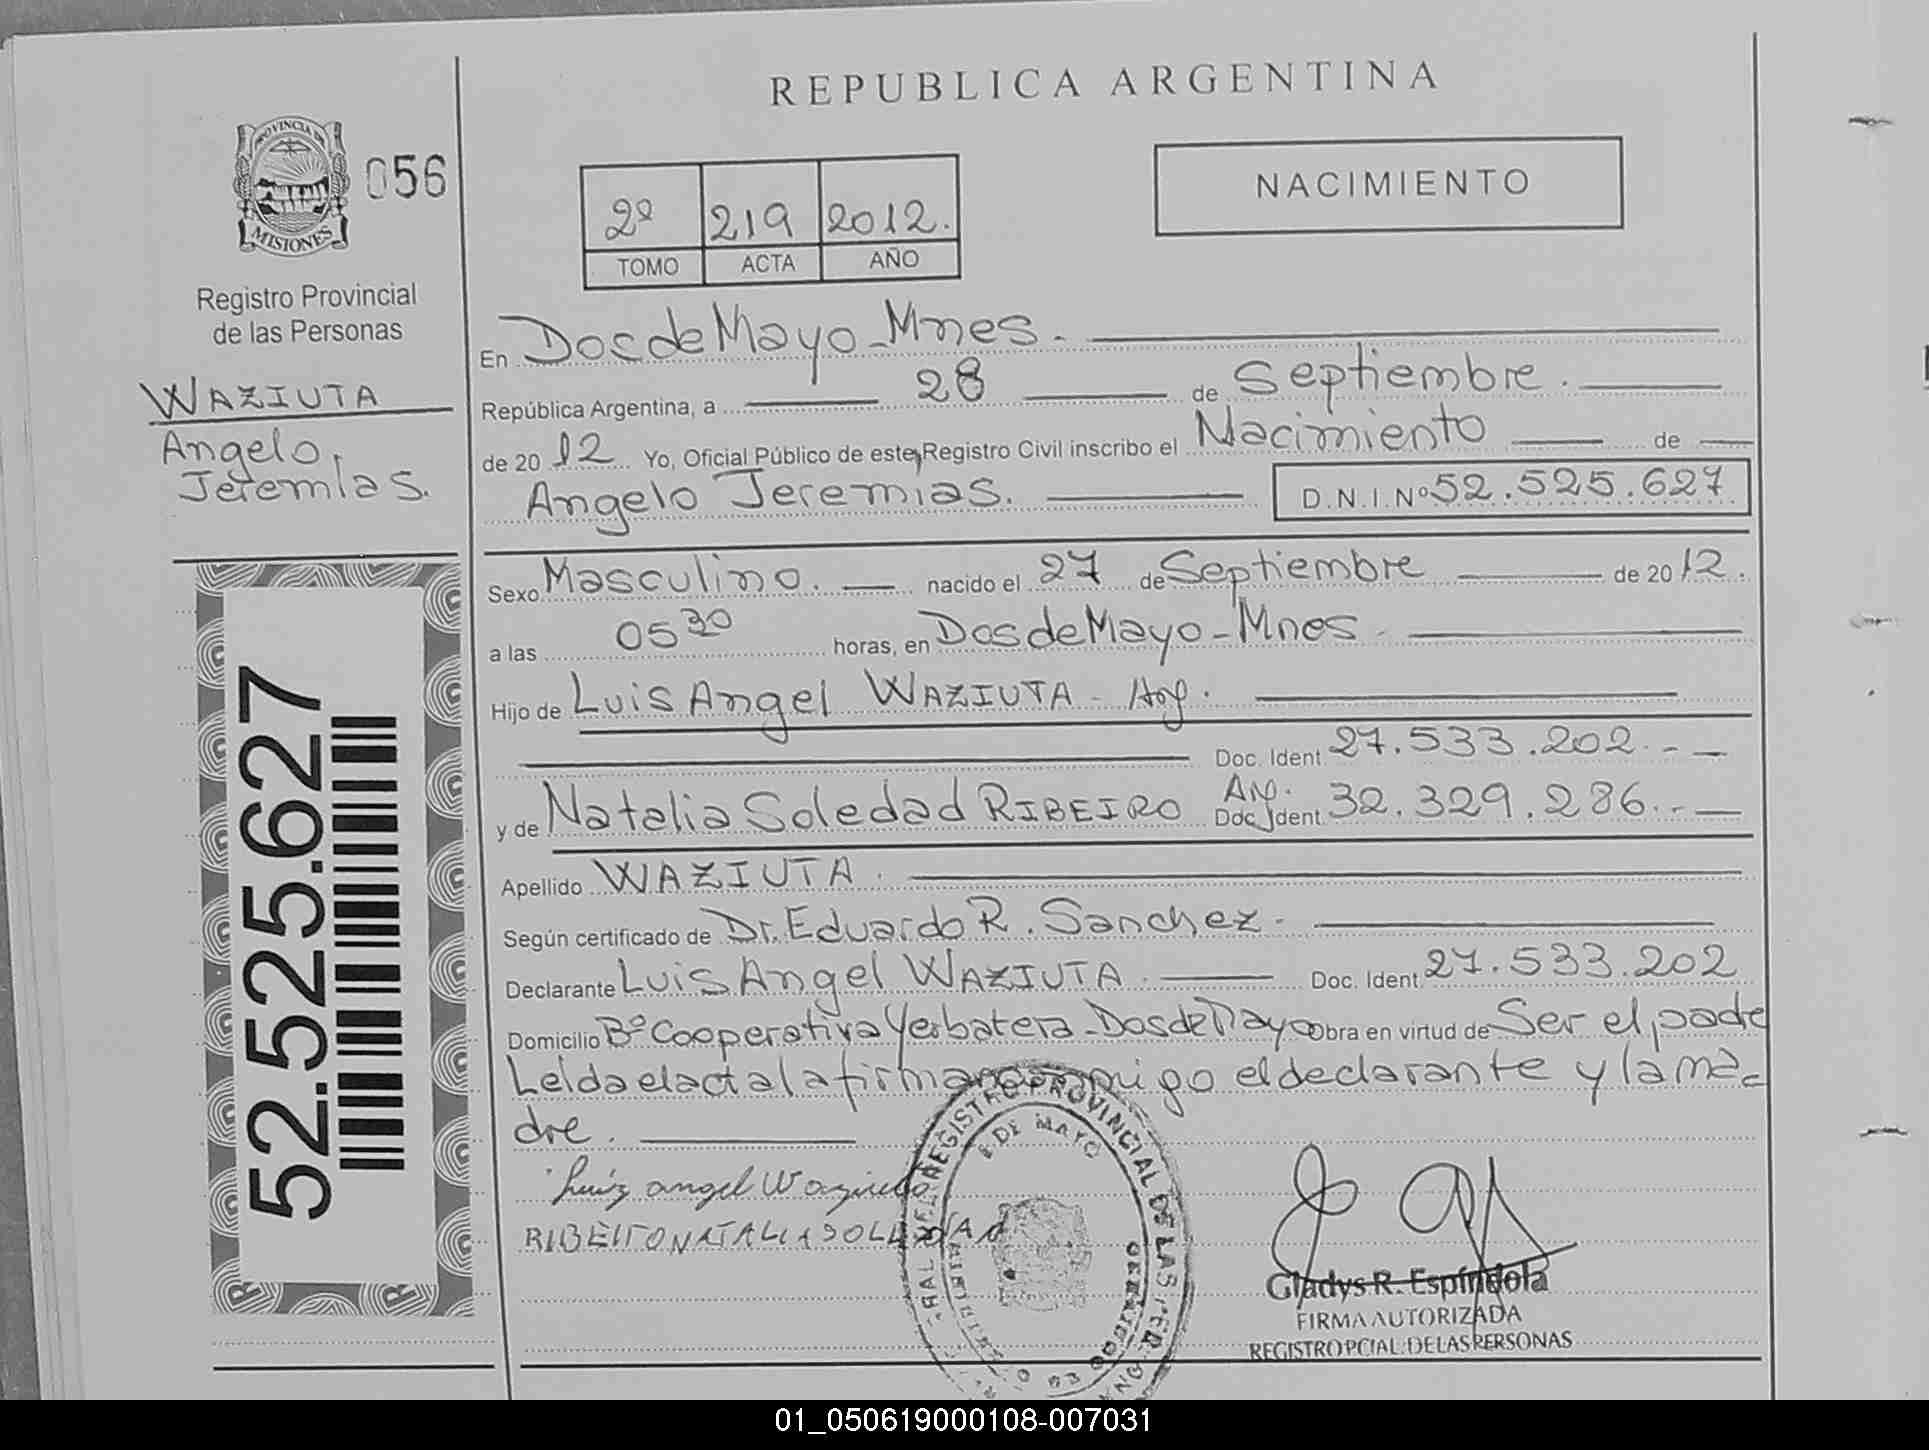 REPUBLICA ARGENTINA
PROVINCIA DE
MISIONES
056
Registro Provincial
de las Personas
WAZIUTA
Angelo
Jeremias.
52.525.627
2º 219 2012.
TOMO ACTA AÑO
NACIMIENTO
En Dos de Mayo - Mnes.
República Argentina, a 28 de Septiembre.
de 2012 Yo, Oficial Público de este Registro Civil inscribo el Nacimiento de
Angelo Jeremias. D.N.I.Nº 52.525.627
Sexo Masculino. nacido el 27 de Septiembre de 2012.
a las 05 30 horas, en Dos de Mayo - Mnes -
Hijo de Luis Angel WAZIUTA - Arg.
Doc. Ident. 27.533.202.-
y de Natalia Soledad RIBEIRO Arg. Doc. Ident. 32.329.286.-
Apellido WAZIUTA.
Según certificado de Dr. Eduardo R. Sanchez -
Declarante Luis Angel WAZIUTA. Doc. Ident. 27.533.202
Domicilio Bº Cooperativa Yerbatera - Dos de Mayo Obra en virtud de Ser el padre
Leida el acta la firman conmigo el declarante y la ma-
dre.
Luiz angel Waziuta
RIBEIRO NATALIA SOLEDAD
REGISTRO PROVINCIAL DE LAS PERSONAS
2 DE MAYO
Gladys R. Espíndola
FIRMA AUTORIZADA
REGISTRO PCIAL. DE LAS PERSONAS
01_050619000108-007031